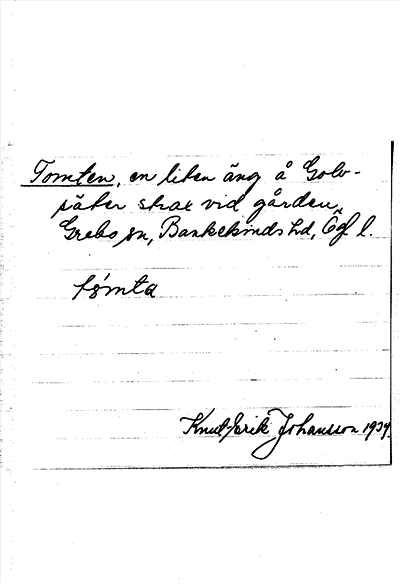 Tomten, en liten äng å Golv-
säter strax vid gården,
Grebo sn, Bankekinds hd, Ög l.
tómta
Knut-Erik Johansson 1934.